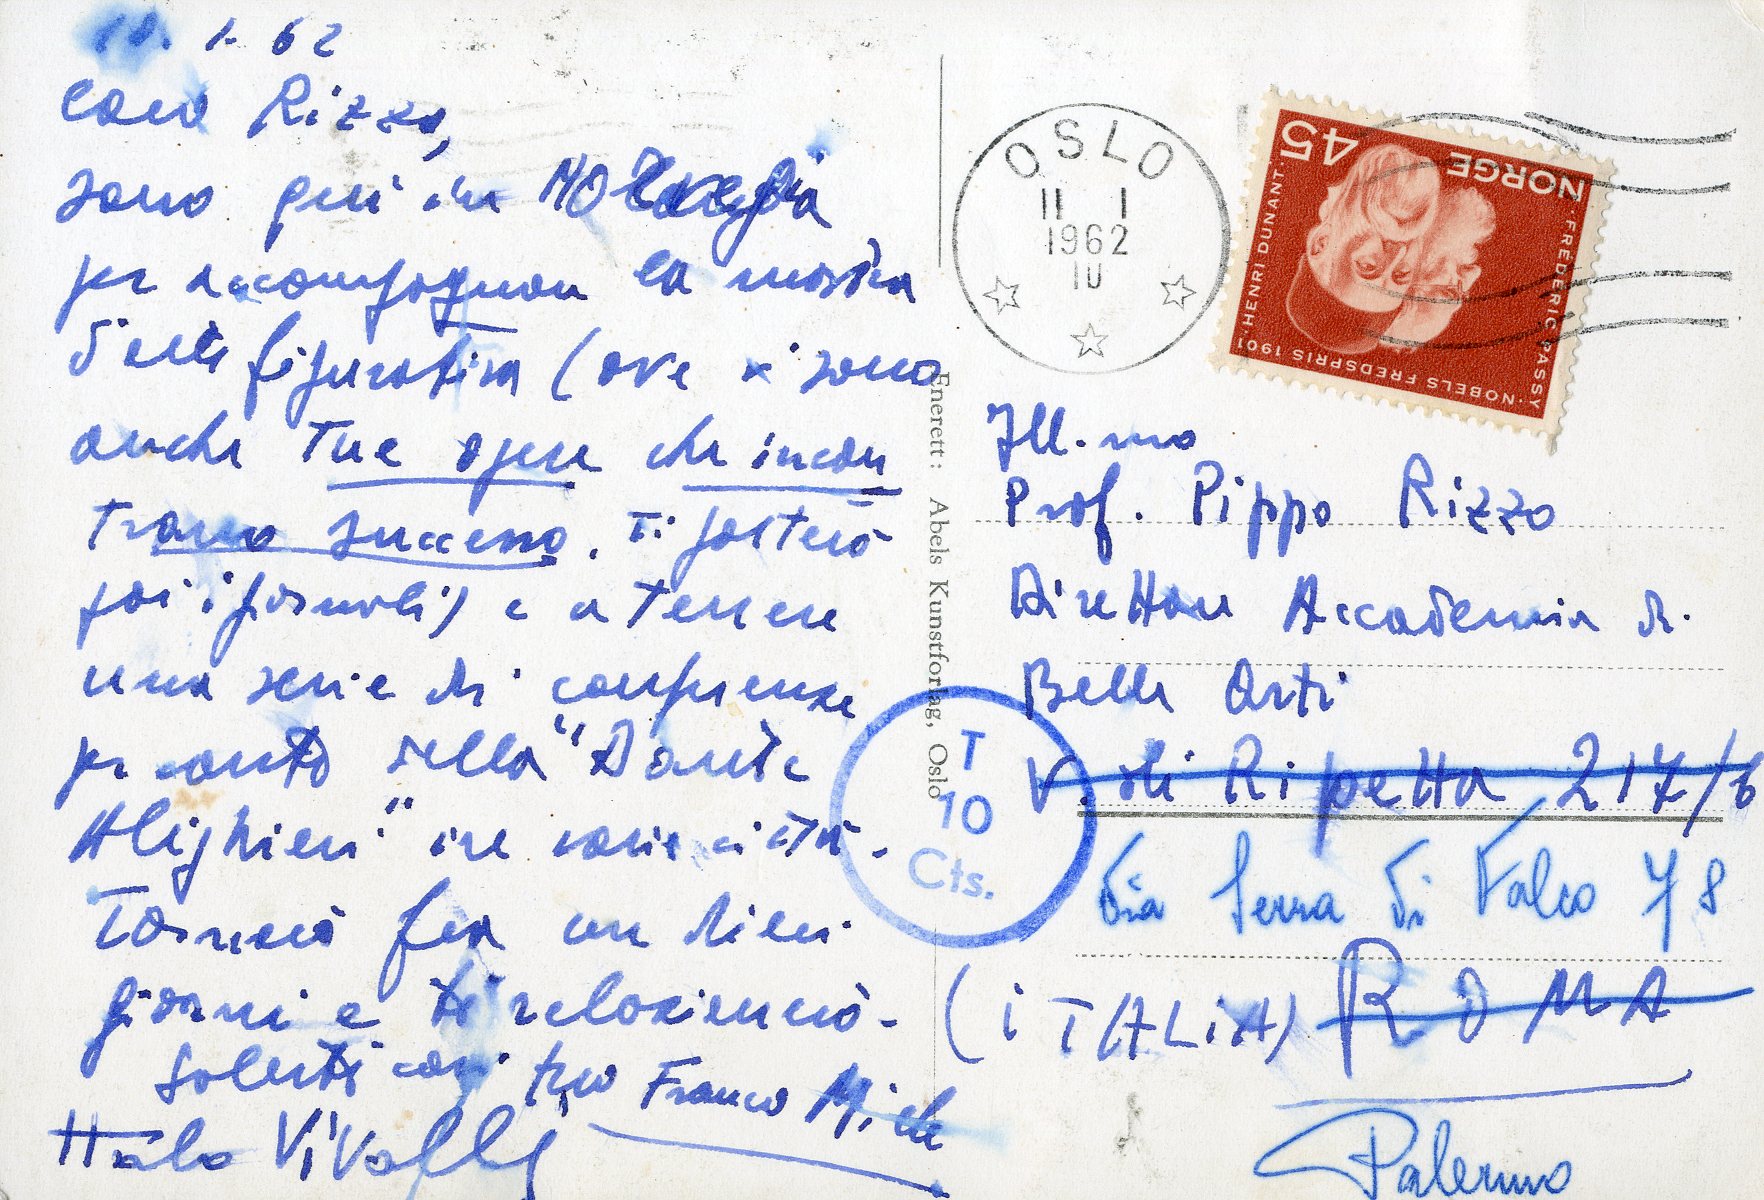 10. 1. 62
Caro Rizzo,
sono qui in NORVEGIA
per accompagnare la mostra
d'arte figurativa (ove vi sono
anche Tue opere che incon
trano successo. Ti porterò
poi i giornali) e a tenere
una serie di conferenze
per conto della "Dante
Alighieri" in varie città.
Tornerò fra un dieci
giorni e ti relazionerò.
Saluti cari tuo Franco Miele
Italo Vivaldi
Enerett: Abels Kunstforlag, Oslo
OSLO
11 1
1962
10
45
NORGE
HENRI DUNANT
FREDERIC PASSY
NOBELS FREDSPRIS 1901
Ill.mo
Prof. Pippo Rizzo
Direttore Accademia di
Belle Arti
V. di Ripetta 217/b
T
10
Cts.
Via Serra di Falco 78
(ITALIA) ROMA
Palermo